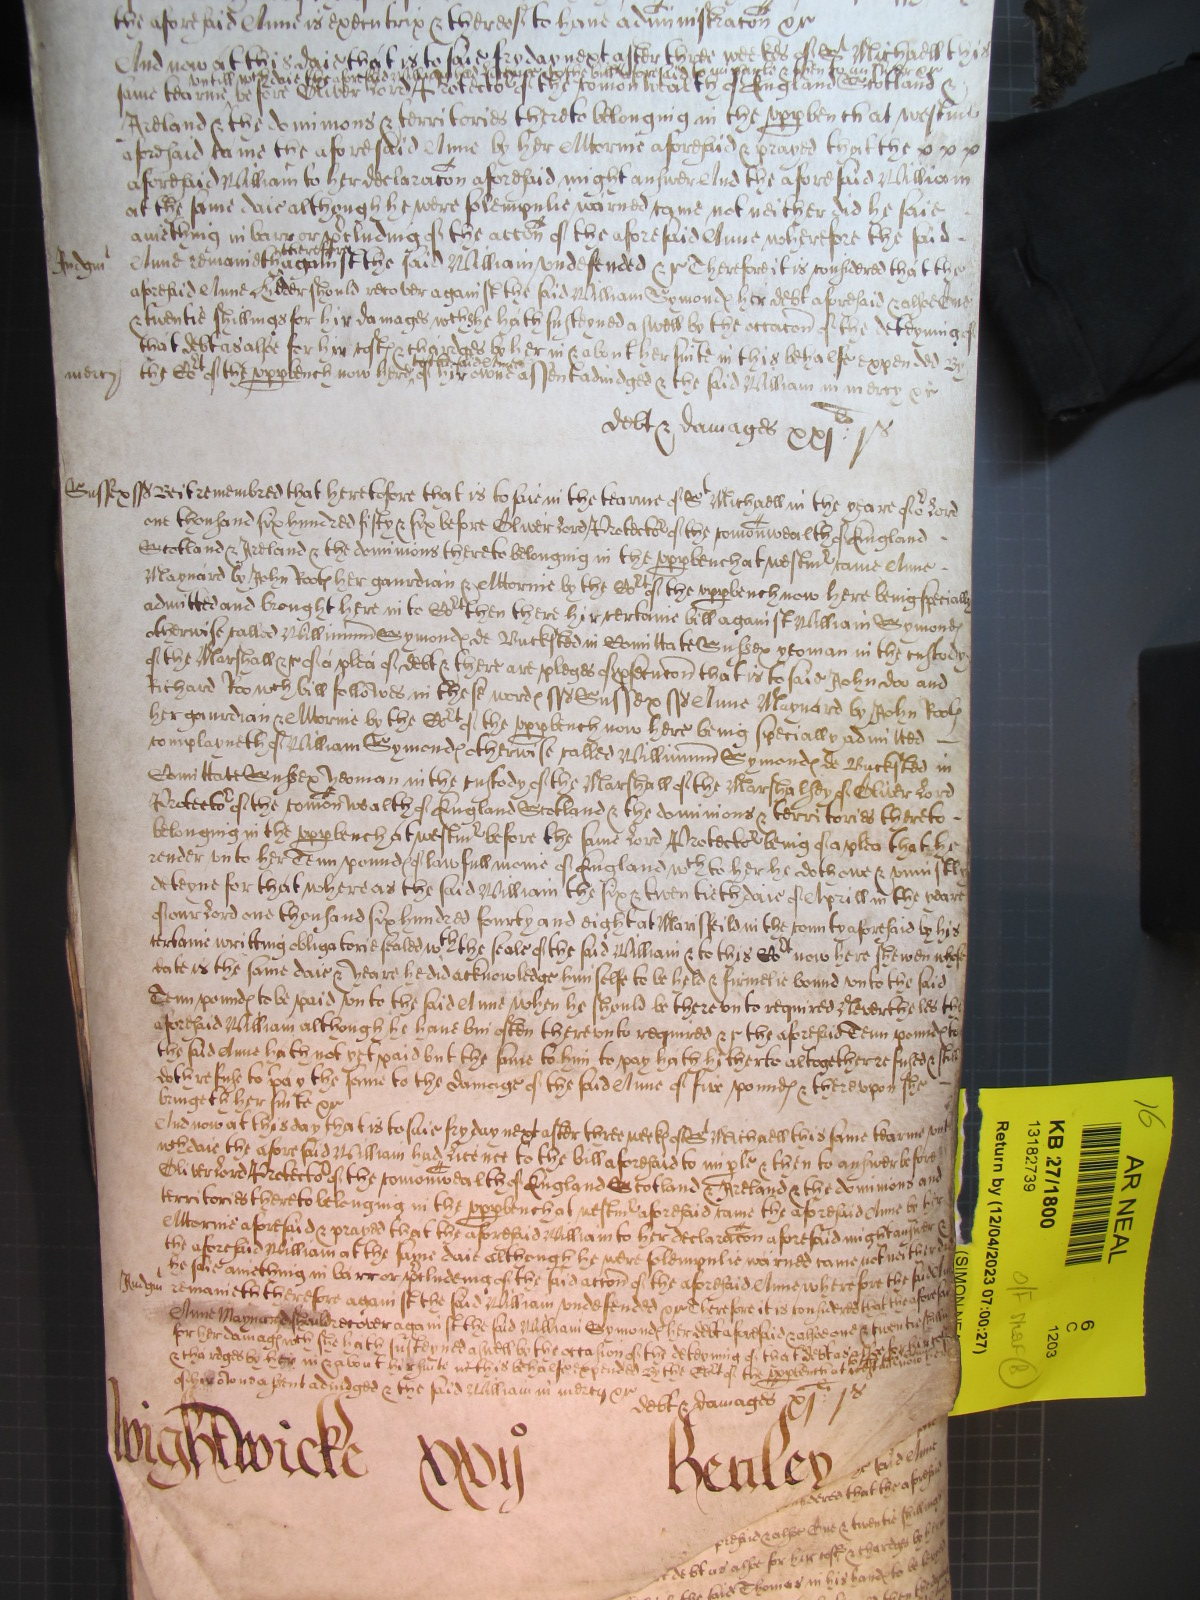 the aforesaid Anne is executrix & thereof to have administracon &c
And now at this daie that is to saie fryday next after three weekes of St Michaell this
untill wch daie the aforesaid William had licence to the bill aforesaid to imparle & then to answer &c
same tearme before Oliver Lord Protector of the comonwealth of England Scotland &
Ireland & the dominions & territories thereto belonging in the upp bench at westmr
aforesaid came the aforesaid Anne by her Attornie aforesaid & prayed that the x x x
aforesaid William to her declaracon aforesaid might answer And the aforesaid William
at the same daie although he were solempnlie warned came not neither did he saie
aniething in barr or pcluding of the accon of the aforesaid Anne wherefore the said
Judgmt
Anne remaineth therefore against the said William undefended &c Therefore it is considered that the
aforesaid Anne should recover against the said William Symonds her debt aforesaid & alsoe One
& twentie shillings for hir damages which she hath susteyned aswell by the occacon of the deteyning of
that debt as alsoe for hir costs & chardges by her in & about her suite in this behalfe expended By
mercy
the Cort of the uppbench now here to the said Anne of hir owne assent adiudged & the said William in mercy &c
debt & damages xxjli js
Sussex ss Be it remembred that heretofore that is to saie in the tearme of St Michaell in the yeare of or Lord
one thousand six hundred fifty & six before Oliver Lord Protector of the comonwealth of England
Scotland & Ireland & the dominions thereto belonging in the uppbench at westmr came Anne
Maynard by John Rootes her gaurdian & Attornie by the Cort of the uppbench now here being specially
admitted and brought here in to Cort then there hir certaine bill against William Symonds
otherwise called Willimum Symonds de Bucksted in Comittate Sussex yeoman in the custody
of the Marshall &c of a plea of debt & there are pledges of psecucon that is to saie John Doo and
Richard Roo wch bill followes in these words ss Sussex ss Anne Maynard by John Rootes
her gaurdian & Attornie by the Cort of the uppbench now here being specially admitted
complayneth of William Symonds otherwise called Willimum Symonds de Bucksted in
Comittate Sussex Yeoman in the custody of the Marshall of the Marshalsey of Oliver Lord
Protector of the comonwealth of England Scotland & the dominions & territories thereto
belonging in the uppbench at westmr before the same Lord Protector being of a plea that he
render unto her Tenn pounds of lawfull monie of England wch to her he doth owe & uniustly
deteyne for that whereas the said William the six & twentieth daie of Aprill in the yeare
of our Lord one thousand six hundred fourty and eight at Marisfeild in the county aforesaid by his
certaine writting obligatorie sealed with the seale of the said William & to this Cort now here shewen whose
date is the same daie & yeare he did acknowledge himselfe to be held & firmelie bound unto the said
Tenn pounds to be paid unto the said Anne when he should be thereunto required Neverthelesse the
aforesaid William although he have bin often thereunto required &c the aforesaid Tenn pounds to
the said Anne hath not yet paid but the same to him to pay hath hitherto altogether refused & still
doth refuse to pay the same to the damage of the said Anne of five pounds & thereupon she
bringeth her suite &c
And now at this day that is to saie fryday next after three weeks of St Michaell this same tearme untill
wch daie the aforesaid William had licence to the bill aforesaid to imple & then to answer before
Oliver Lord Protector of the comonwealth of England Scotland & Ireland & the dominions and
territories thereto belonging in the uppbench at westmr aforesaid came the aforesaid Anne by her
Attornie aforesaid & prayed that the aforesaid William to her declaracon aforesaid might answer &
the aforesaid William at the same daie although he were solempnlie warned came not neither did
he saie aniething in barr or pcluding of the said accon of the aforesaid Anne wherefore the said Anne
Judgmt
remaineth therefore against the said William undefended &c Therefore it is considered that the aforesaid
Anne Maynard should recover against the said William Symonds her debt aforesaid & alsoe one & twentie shillings
for her damages wch she hath susteyned aswell by the occasion of the deteyning of that debt as
& chardges by her in & about his suite in this behalfe expended By the Cort of the uppbench at
of hir owne assent adiudged & the said William in mercy &c
debt & damages xjli js
Wightwicke xxvijo Henley
said Anne
considered that the aforesaid
aforesaid & alsoe One & twentie shillings
debt as alsoe for hir costs & chardges by her
the said Thomas in his hands to be
16
AR NEAL
KB 27/1800
13182739
Return by (12/04/2023 07:00:27)
6
C
1203
(SIMON NEAL